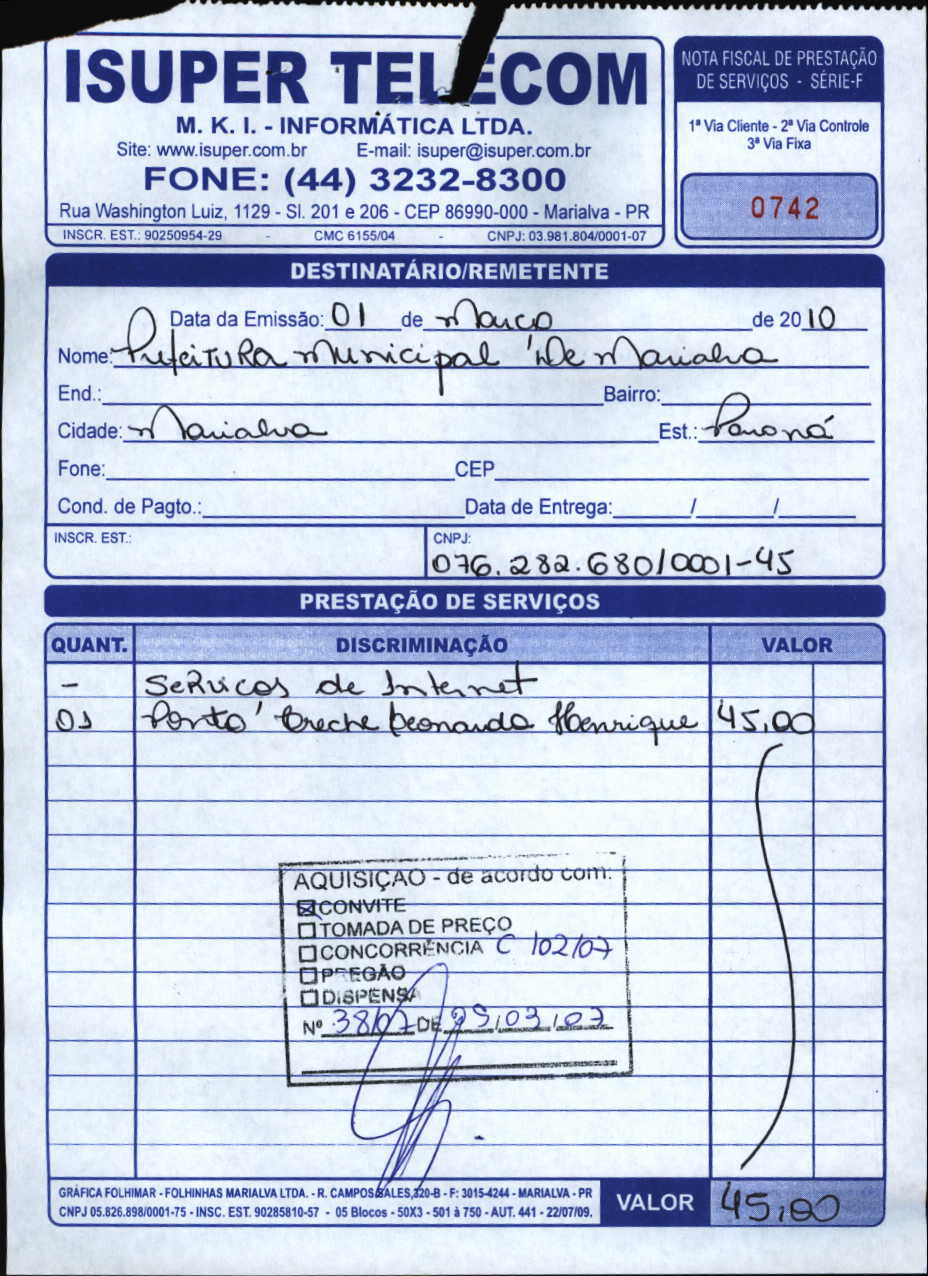 ISUPER TELECOM
M. K. I. - INFORMÁTICA LTDA.
Site: www.isuper.com.br E-mail: isuper@isuper.com.br
FONE: (44) 3232-8300
Rua Washington Luiz, 1129 - Sl. 201 e 206 - CEP 86990-000 - Marialva - PR
INSCR. EST.: 90250954-29 - CMC 6155/04 - CNPJ: 03.981.804/0001-07
NOTA FISCAL DE PRESTAÇÃO
DE SERVIÇOS - SÉRIE-F
1ª Via Cliente - 2ª Via Controle
3ª Via Fixa
0742
DESTINATÁRIO/REMETENTE
Data da Emissão: 01 de Março de 2010
Nome: Prefeitura Municipal De Marialva
End.: Bairro:
Cidade: Marialva Est.: Paraná
Fone: CEP
Cond. de Pagto.: Data de Entrega: / /
INSCR. EST.: CNPJ:
076.282.680/0001-45
PRESTAÇÃO DE SERVIÇOS
QUANT. DISCRIMINAÇÃO VALOR
- Serviços de Internet
01 Ponto Creche Leonardo Henrique 45,00
AQUISIÇÃO - de acordo com:
CONVITE
TOMADA DE PREÇO
CONCORRÊNCIA C 102/07
PREGÃO
DISPENSA
Nº 38/07 DE /03/07
GRÁFICA FOLHIMAR - FOLHINHAS MARIALVA LTDA. - R. CAMPOS SALES, 320-B - F: 3015-4244 - MARIALVA - PR
CNPJ 05.826.898/0001-75 - INSC. EST. 90285810-57 - 05 Blocos - 50X3 - 501 à 750 - AUT. 441 - 22/07/09.
VALOR 45,00